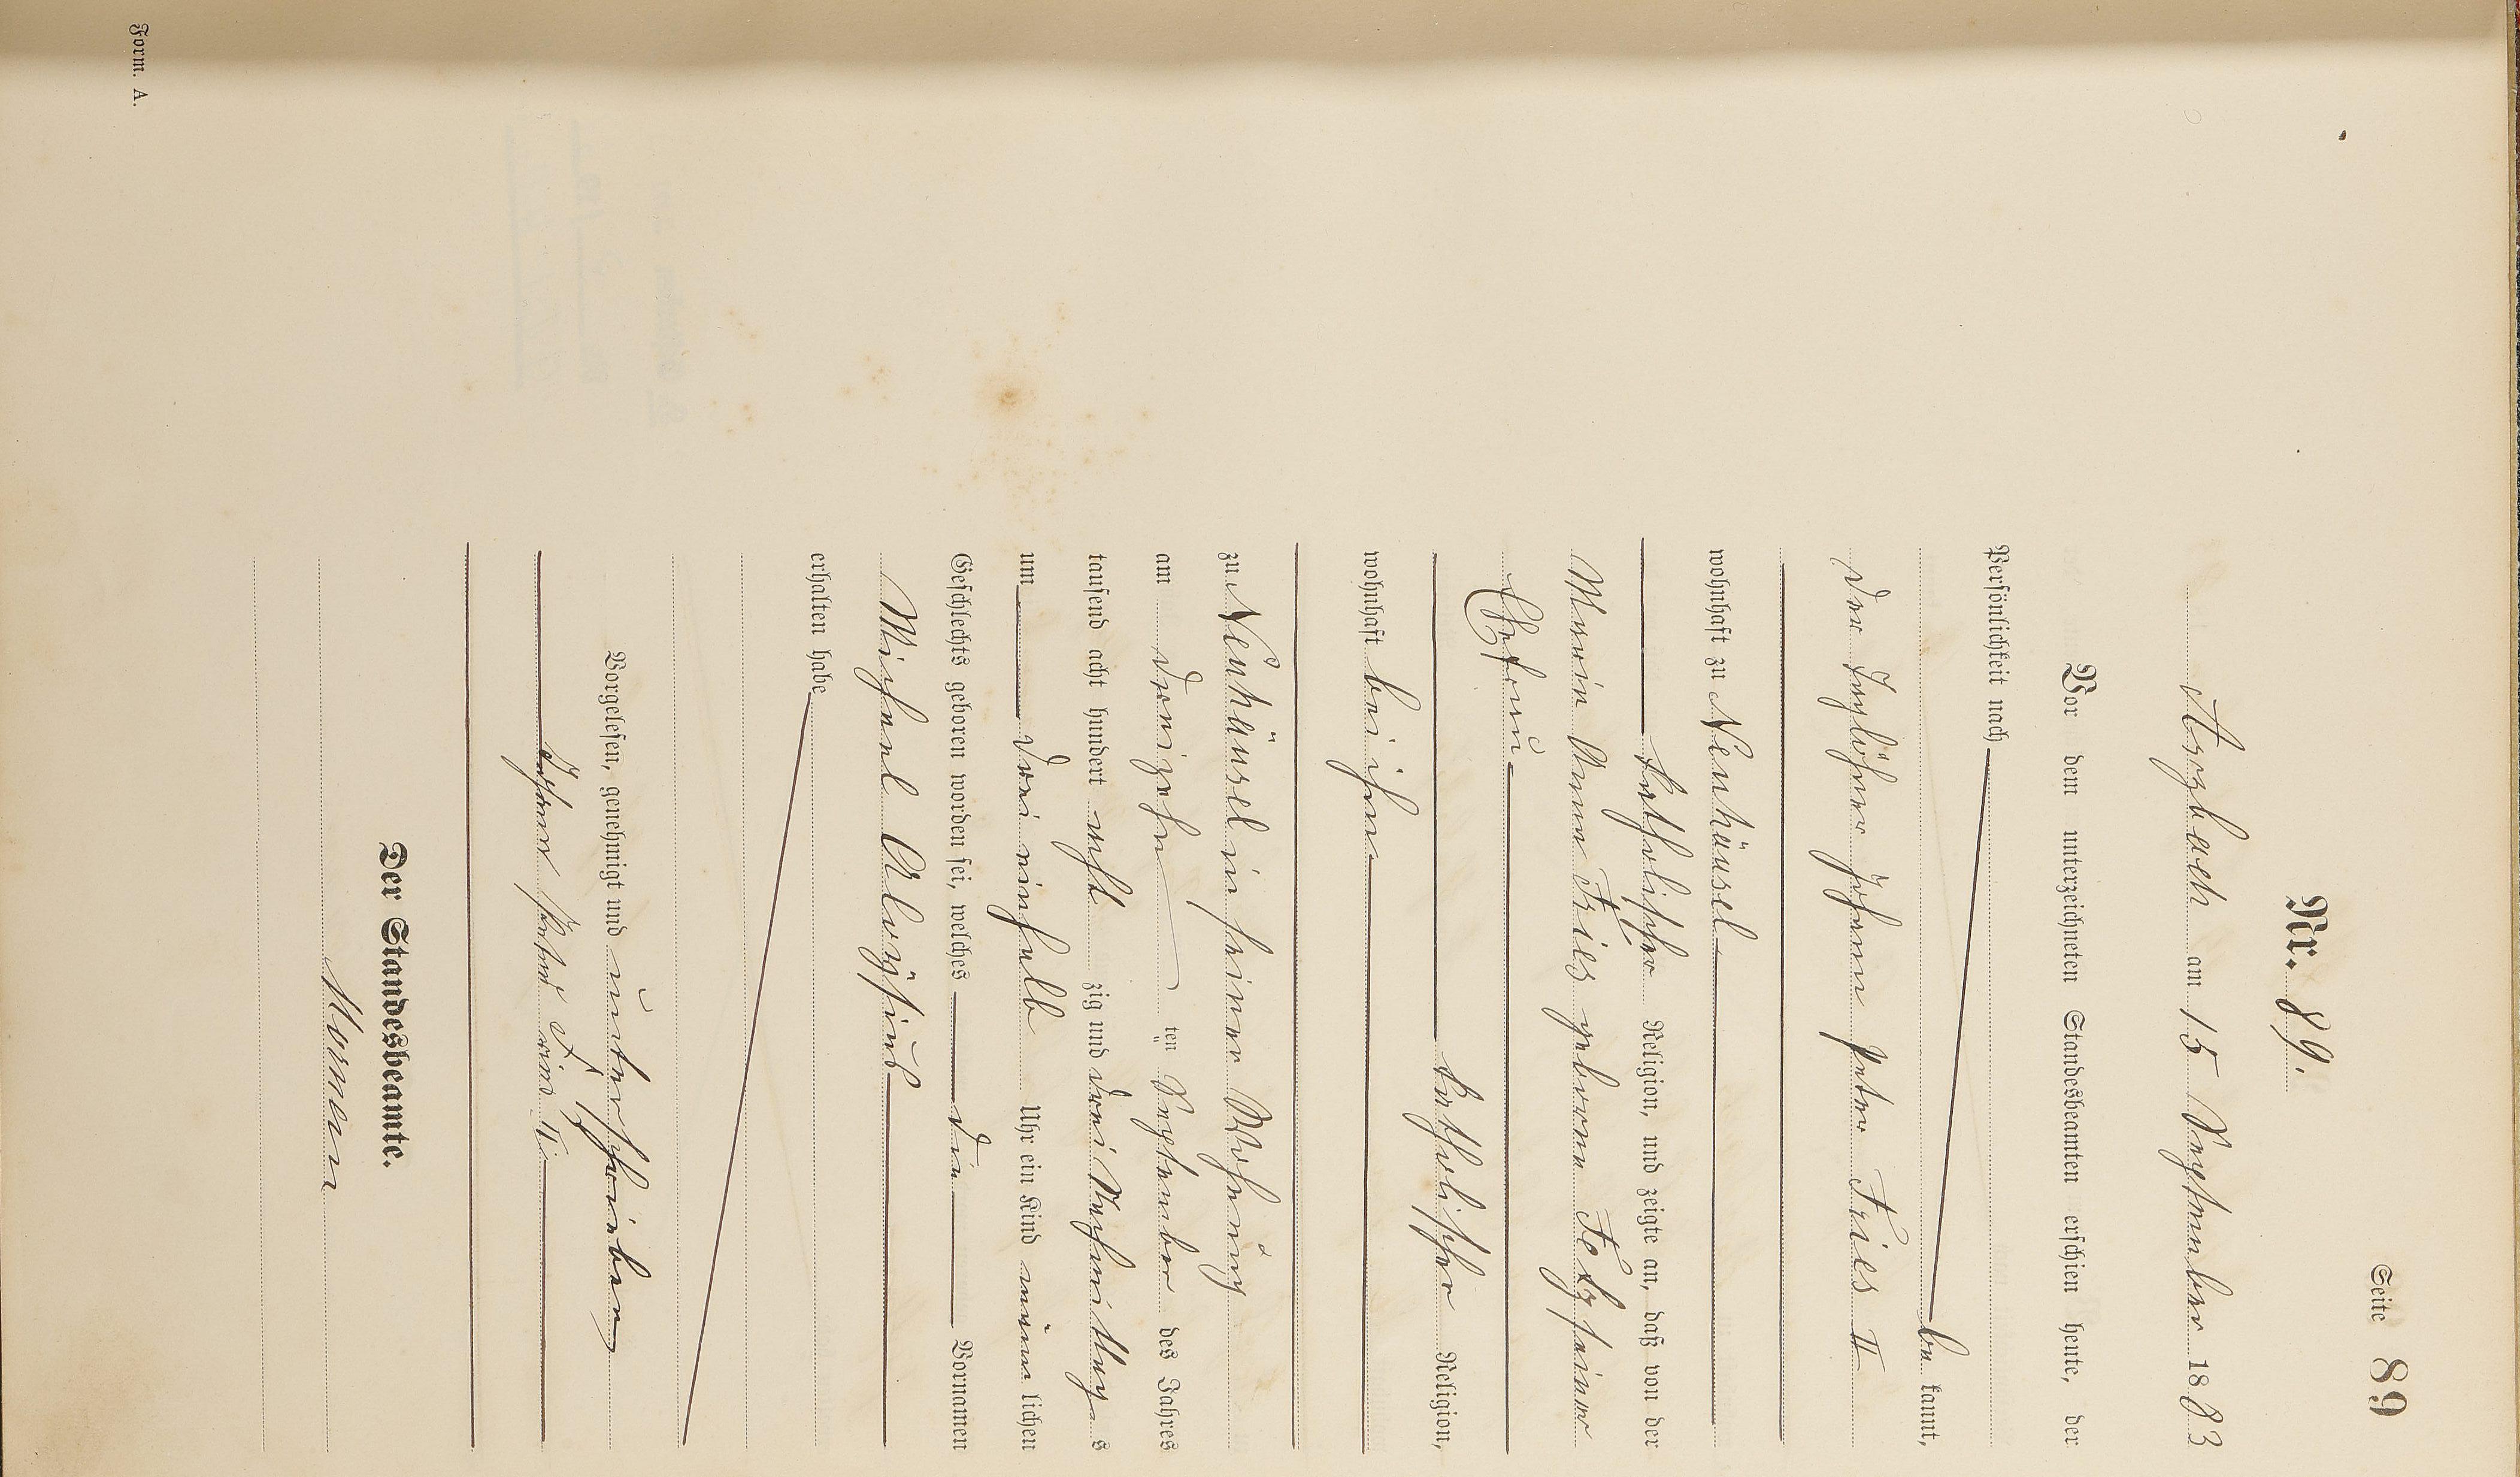 Seite 89
Nr. 89.
Arzbach am 15 September 1883
Vor dem unterzeichneten Standesbeamten erschien heute, der
Persönlichkeit nach
be kannt,
der Taglöhner Johann Peter Fries II
wohnhaft zu Neuhäusel
katholischer Religion, und zeigte an, daß von der
Maria Anna Fries geborene seiner
Ehefrau
katholischer Religion,
wohnhaft bei ihm
zu Neuhäusel in seiner Wohnung
am dreizehn ten September des Jahres
tausend acht hundert acht zig und drei Nachmittag s
um drei einhalb Uhr ein Kind männ lichen
Geschlechts geboren worden sei, welches die Vornamen
Michael Aloysius
erhalten habe
Vorgelesen, genehmigt und unterschrieben
Johann Peter Fries II
Der Standesbeamte.
Form. A.